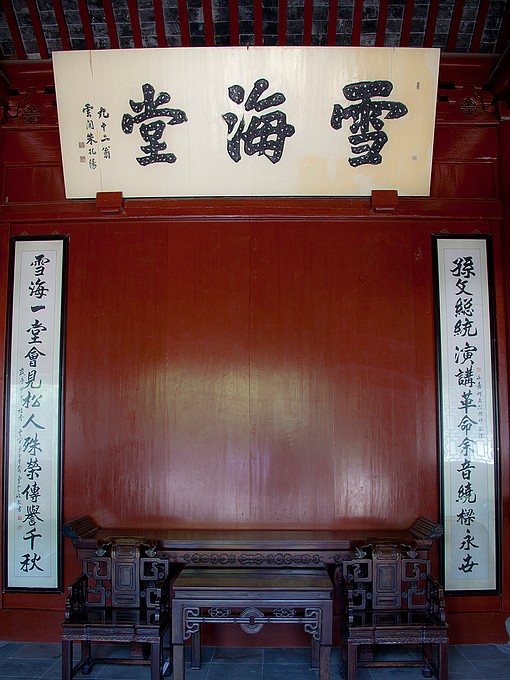 雪海堂
九十二翁
雲間朱孔陽
孫文總統演講革命余音繞樑永世
雪海一堂會見松人殊榮傳譽千秋